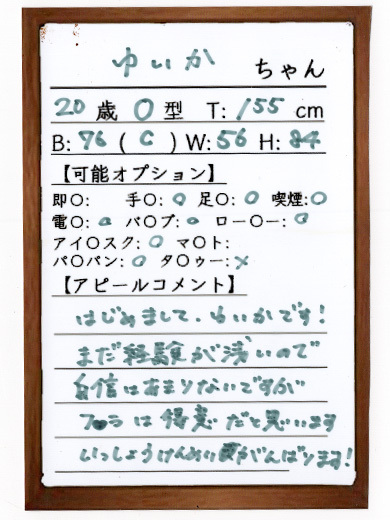 ゆいか ちゃん
20歳 O型 T:155cm
B:76(C)W:56 H:84
【可能オプション】
即〇: 手〇:○ 足〇:○ 喫煙:○
電〇:○ バ〇ブ:○ ロー〇ー:○
アイ〇スク:○ マ〇ト:
パ〇パン:○ タ〇ゥー:×
【アピールコメント】
はじめまして、ゆいかです!
まだ経験が浅いので
自信はあまりないですが
フ●ラは得意だと思います
いっしょうけんめいがんばります!